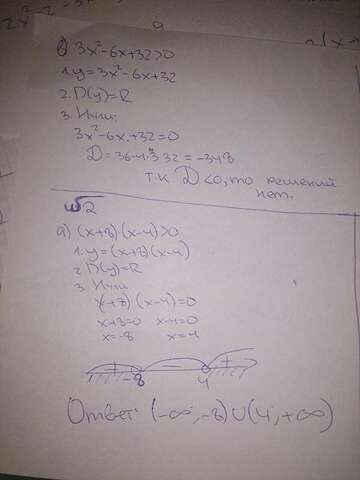 в) 3x²-6x+32>0
1. y=3x²-6x+32
2. D(y)=R
3. Нули:
3x²-6x+32=0
D=36-4·3·32=-348
т.к D<0, то решений
нет.
№2
a) (x+8)(x-4)>0
1. y=(x+8)(x-4)
2. D(y)=R
3. Нули
(x+8)(x-4)=0
x+8=0 x-4=0
x=-8 x=4
+ - +
-8 4
Ответ: (-∞;-8)∪(4;+∞)